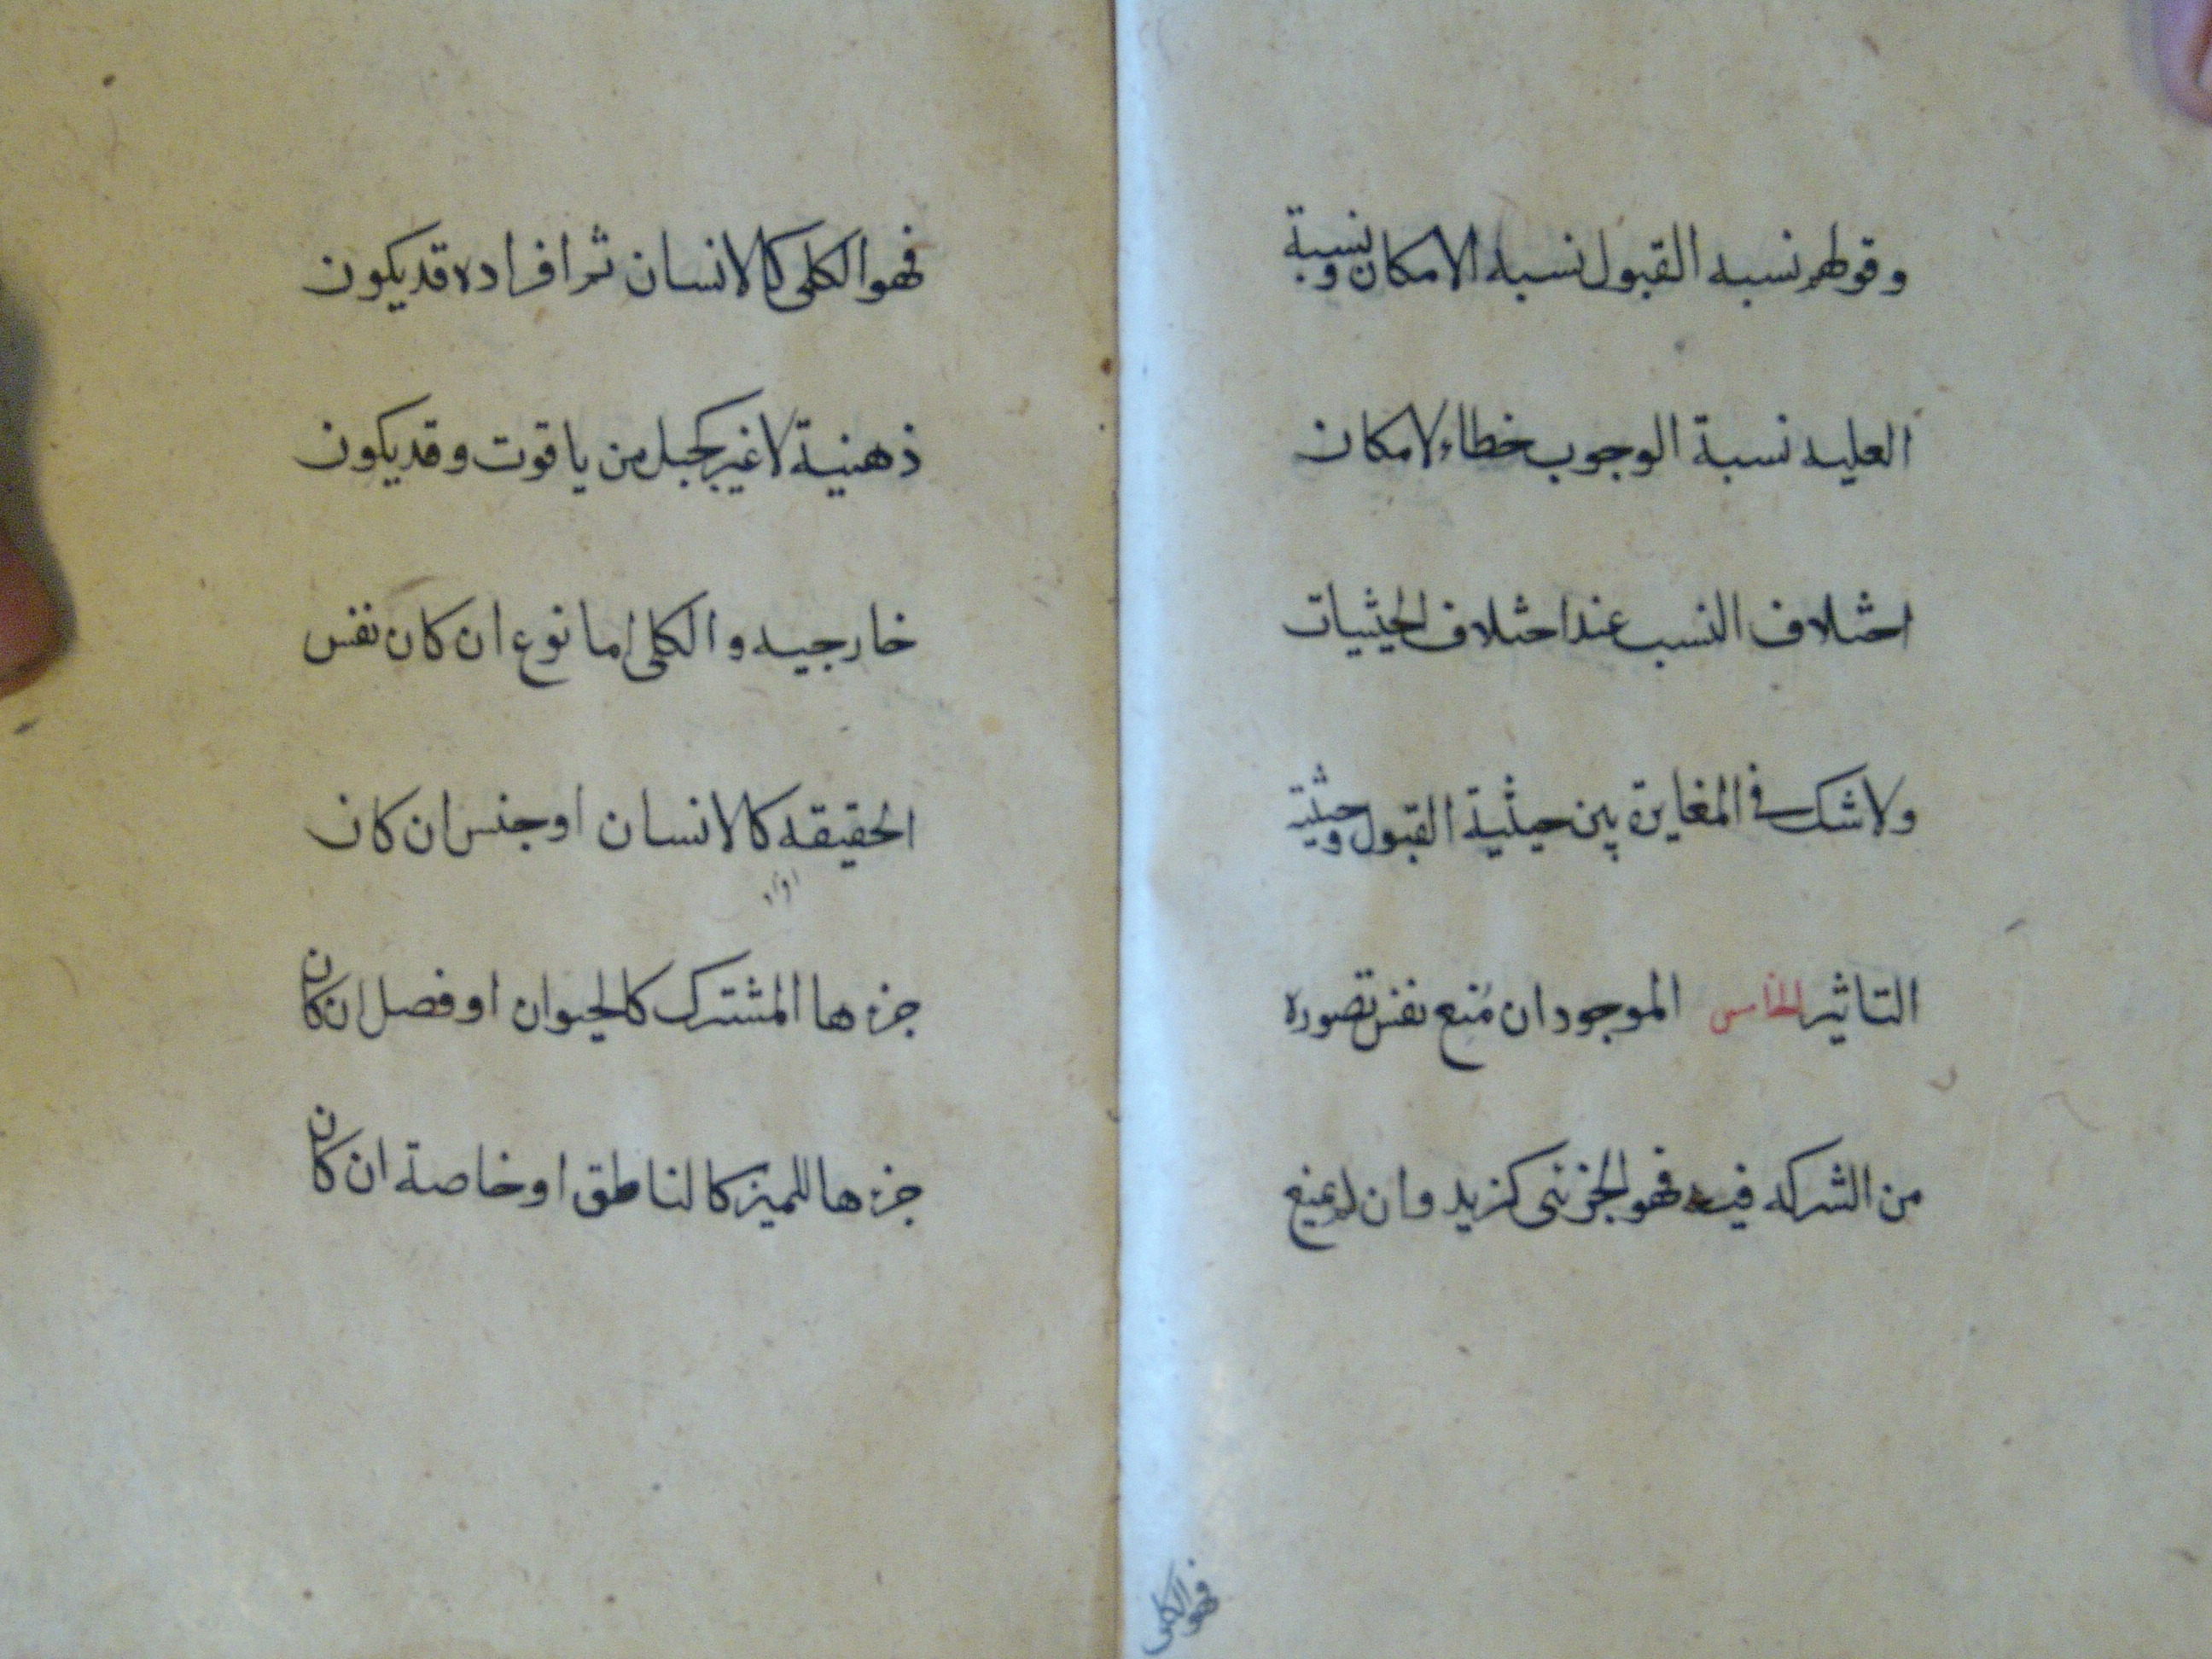 وقولهم نسبه القبول نسبه الامكان ونسبة
العليه نسبة الوجوب خطاء لامكان
اختلاف النسب عند اختلاف الحيثيات
ولا شك في المغايرة بين حيثية القبول وحيثية
التاثير الخامس الموجود ان مُنع نفس تصوره
من الشركه فيه فهو الجزئى كزيد وان لم يمنع
فهو الكلى
فهو الكلى كالانسان ثم افراده قد يكون
ذهنية لا غير كجبل من ياقوت وقد يكون
خارجيه والكلى اما نوع ان كان نفس
الحقيقه كالانسان او جنس ان كان
جزءها المشترك كالحيوان او فصل ان كان
جزءها المميز كالناطق او خاصة ان كان